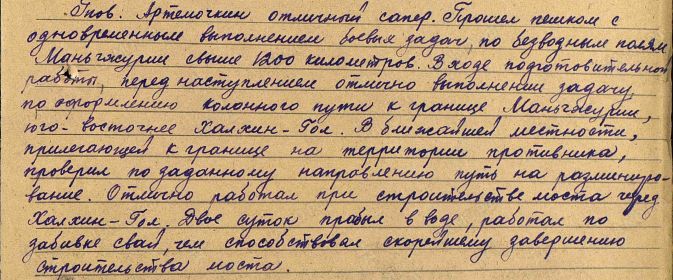 Тов. Артемочкин отличный сапер. Прошел пешком с
одновременным выполнением боевых задач, по безводным полям
Маньчжурии свыше 1200 километров. В ходе подготовительной
работы, перед наступлением отлично выполнении задачу,
по оформлению колонного пути к границе Маньчжурии,
юго-восточнее Халхин-Гол. В ближайшей местности,
прилегающей к границе на территории противника,
проверил по заданному направлению путь на разминиро-
вание. Отлично работал при строительстве моста через
Халхин-Гол. Двое суток пробыл в воде, работал по
забивке свай, чем способствовал скорейшему завершению
строительства моста.